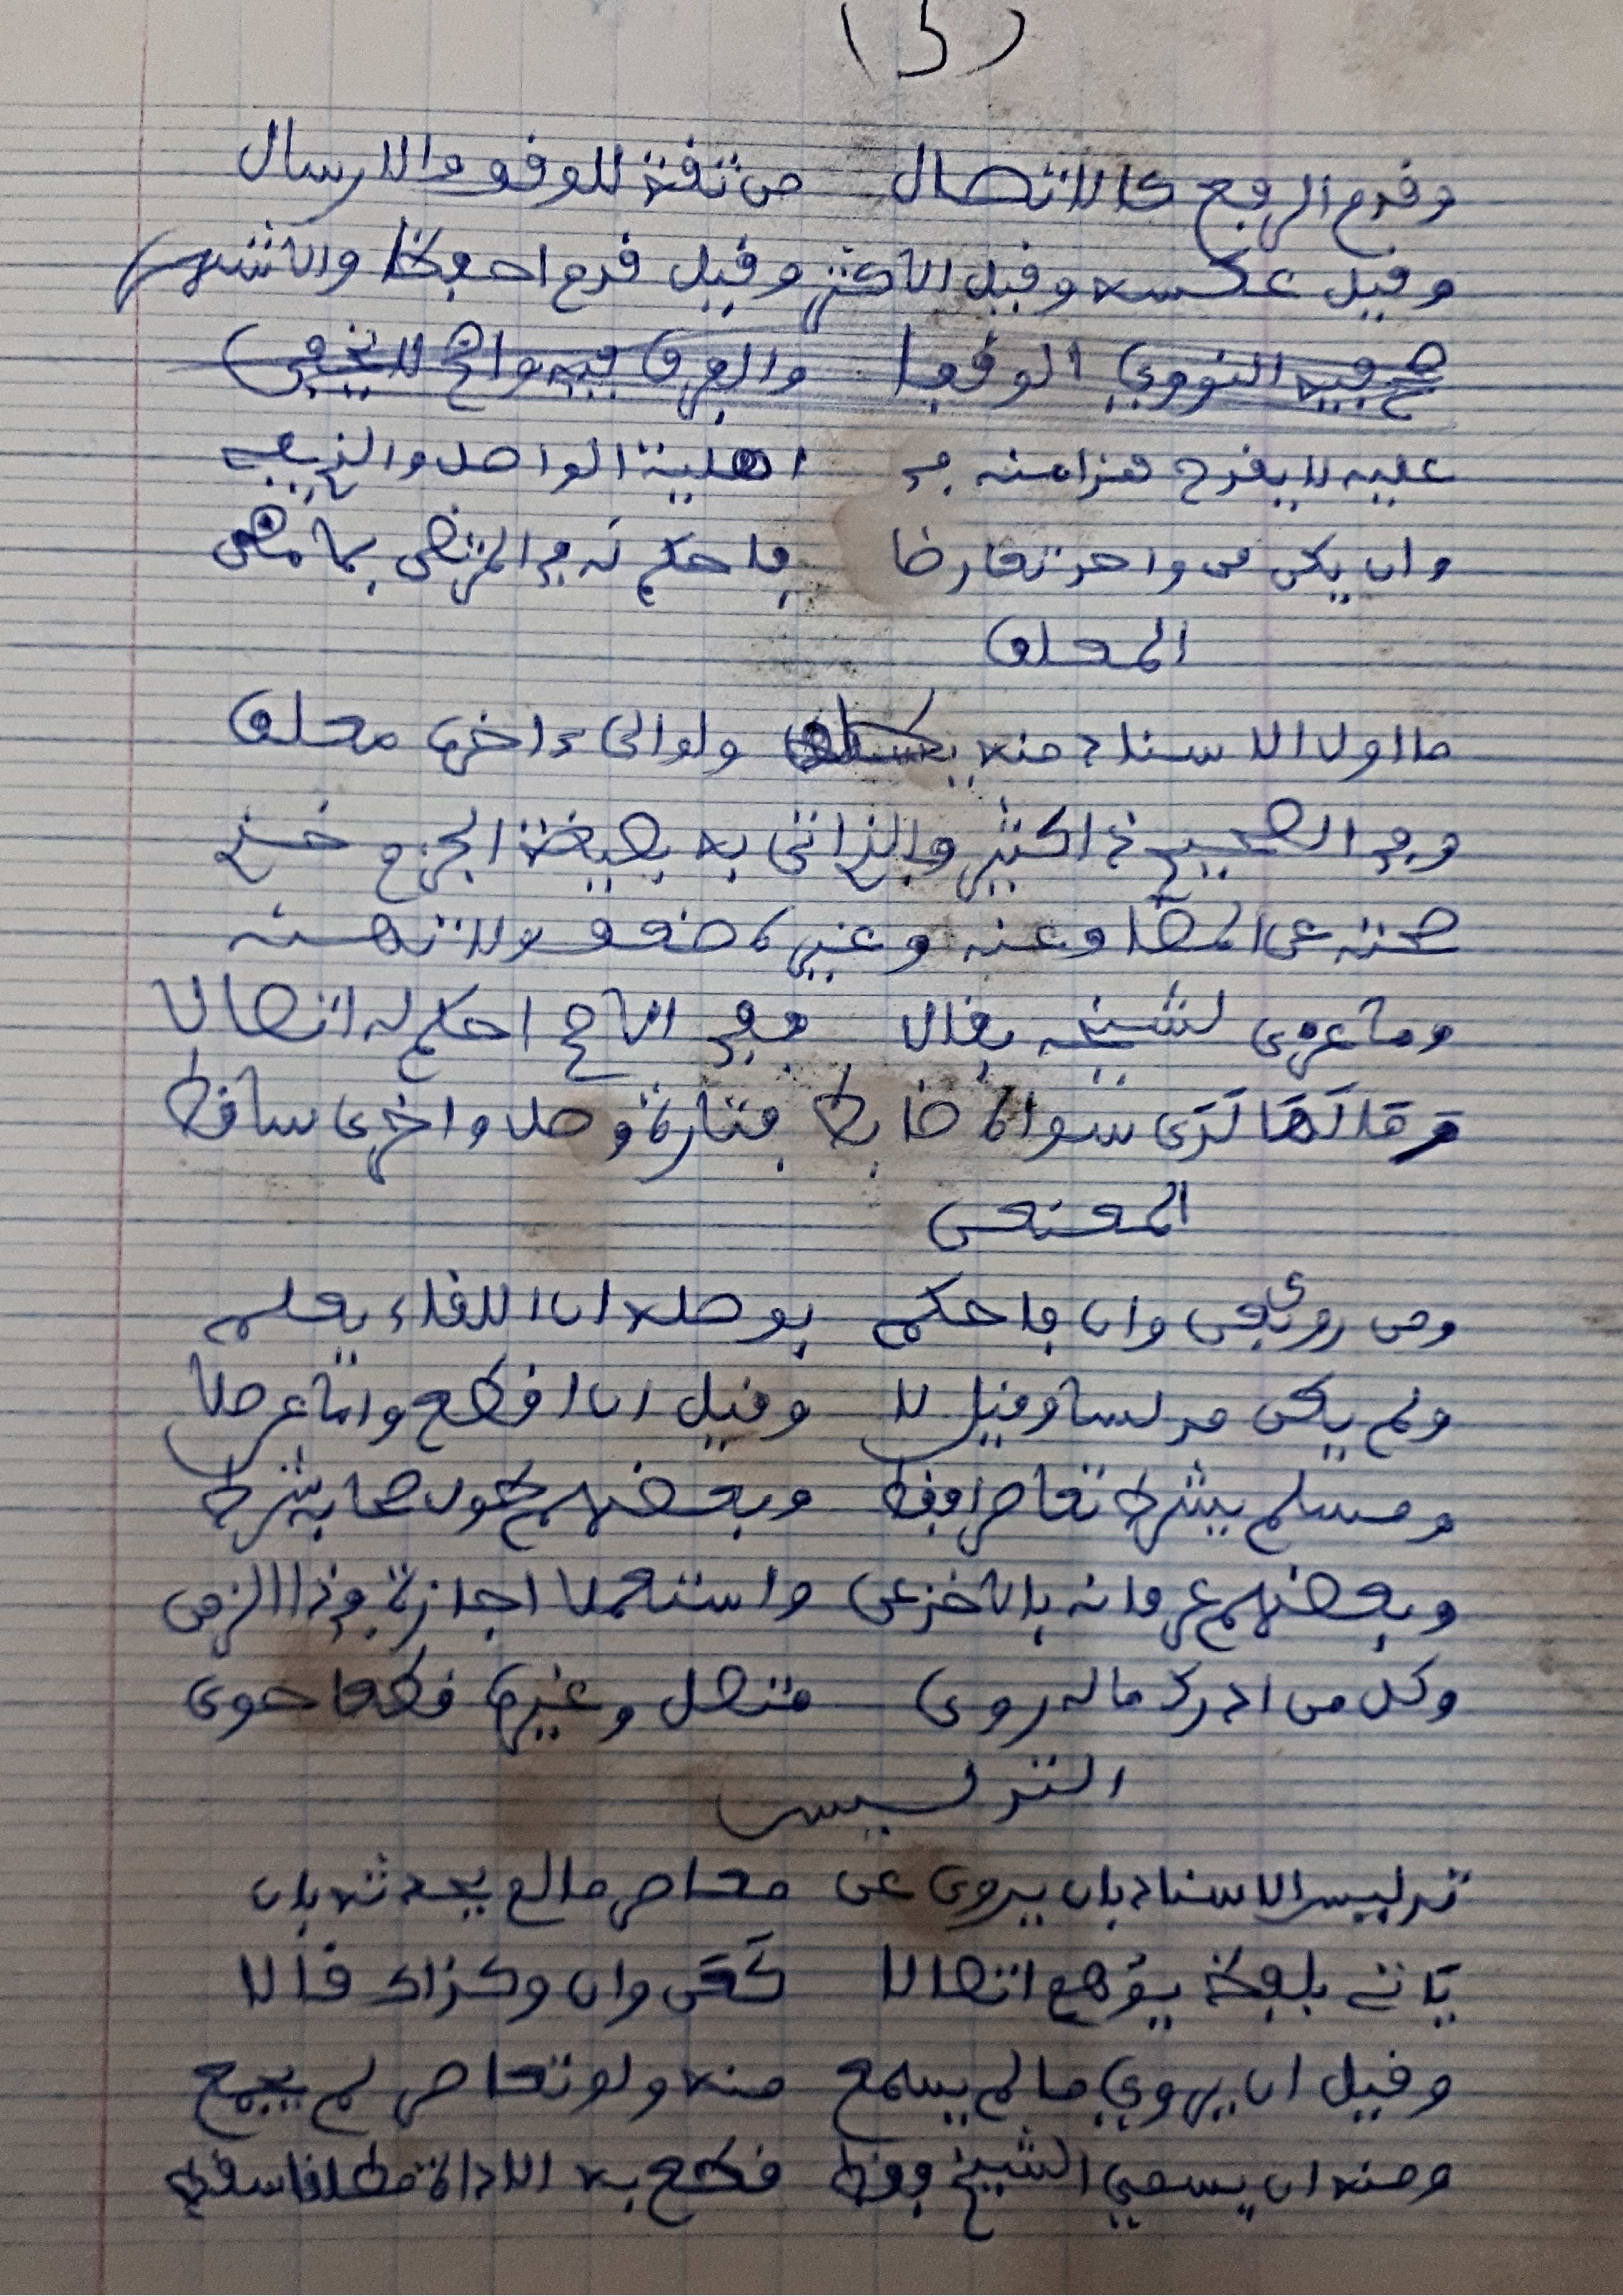 (5)
وقدم الرفع كالاتصال من ثقة للوقف والارسال
وقيل عكسه وقيل الاكثر وقيل قدم احفظا والاشهر
عليه لا يقدح هذا منه في اهلية الواصل والذي يفي
وان يكن من واحد تعارضا فاحكم له في المرتضى بما مضى
المعلق
ما اول الاسناد منه يسقط ولو الى ءاخره معلق
وفي الصحيح ذا كثير والذي اتى به بصيغة الجزم خذ
صحته عن المضاف عنه وغيره ضعف ولا تهنه
وما عزى لشيخه بقال ففي الاصح احكم له اتصالا
وقالها لدى سواه ضابط فتارة وصل واخرى ساقط
المعنعن
ومن روى بعن وان فاحكم بوصله ان اللقاء يعلم
ولم يكن مدلسا وقيل لا وقيل ان اقطع واما عن صلا
ومسلم يشرط تعاصرا فقط وبعضهم طول صحابة شرط
وبعضهم عرفانه بالاخذ عن واستعملا اجازة في ذا الزمن
وكل من ادرك ما له روى متصل وغيره قطعا حوى
التدليس
تدليس الاسناد بان يروي عن معاصر ما لم يحدثه بان
يأتي بلفظ يوهم اتصالا كعن وان وكذاك قالا
وقيل ان يروي ما لم يسمع منه ولو تعاصر لم يجمع
ومنه ان يسمي الشيخ فقط قطع به الاداة مطلقا سقط